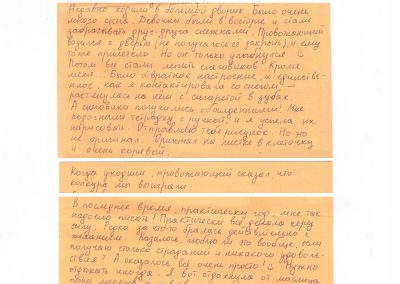 Недавно ходили в большой дворик. Было очень
много снега. Девочки были в восторге и стали
забрасывать друг друга снежками. Провожающий
возился с дверью (не получалось её закрыть), и ему
тоже прилетело. Но он только улыбнулся ☺
Потом все стали лепить снеговиков. Кроме
меня... Было отвратное настроение, и единстве-
нное, как я контактировала со снегом —
растянулась на нём с сигаретой в зубах.
А снеговики получились обалденными! Мне
подогнали тетрадку с ручкой, и я успела их
нарисовать. Отправляю тебе рисунок. Но это
не оригинал. Оригинал на листке в клеточку
и очень корявой.
Когда уходили, провожающий сказал, что
конкурс мы выиграли
В последнее время, практически год, мне так
надоело писать! Практически всё делала через
силу. Редко за что-то бралась действительно с
желанием. Казалось, люблю ли это вообще, если
получаю столько страданий и никакого удоволь-
ствия? А оказалось, всё очень просто! ☺ Нужно
отдыхать иногда. Я вот отдохнула от
пару месяцев